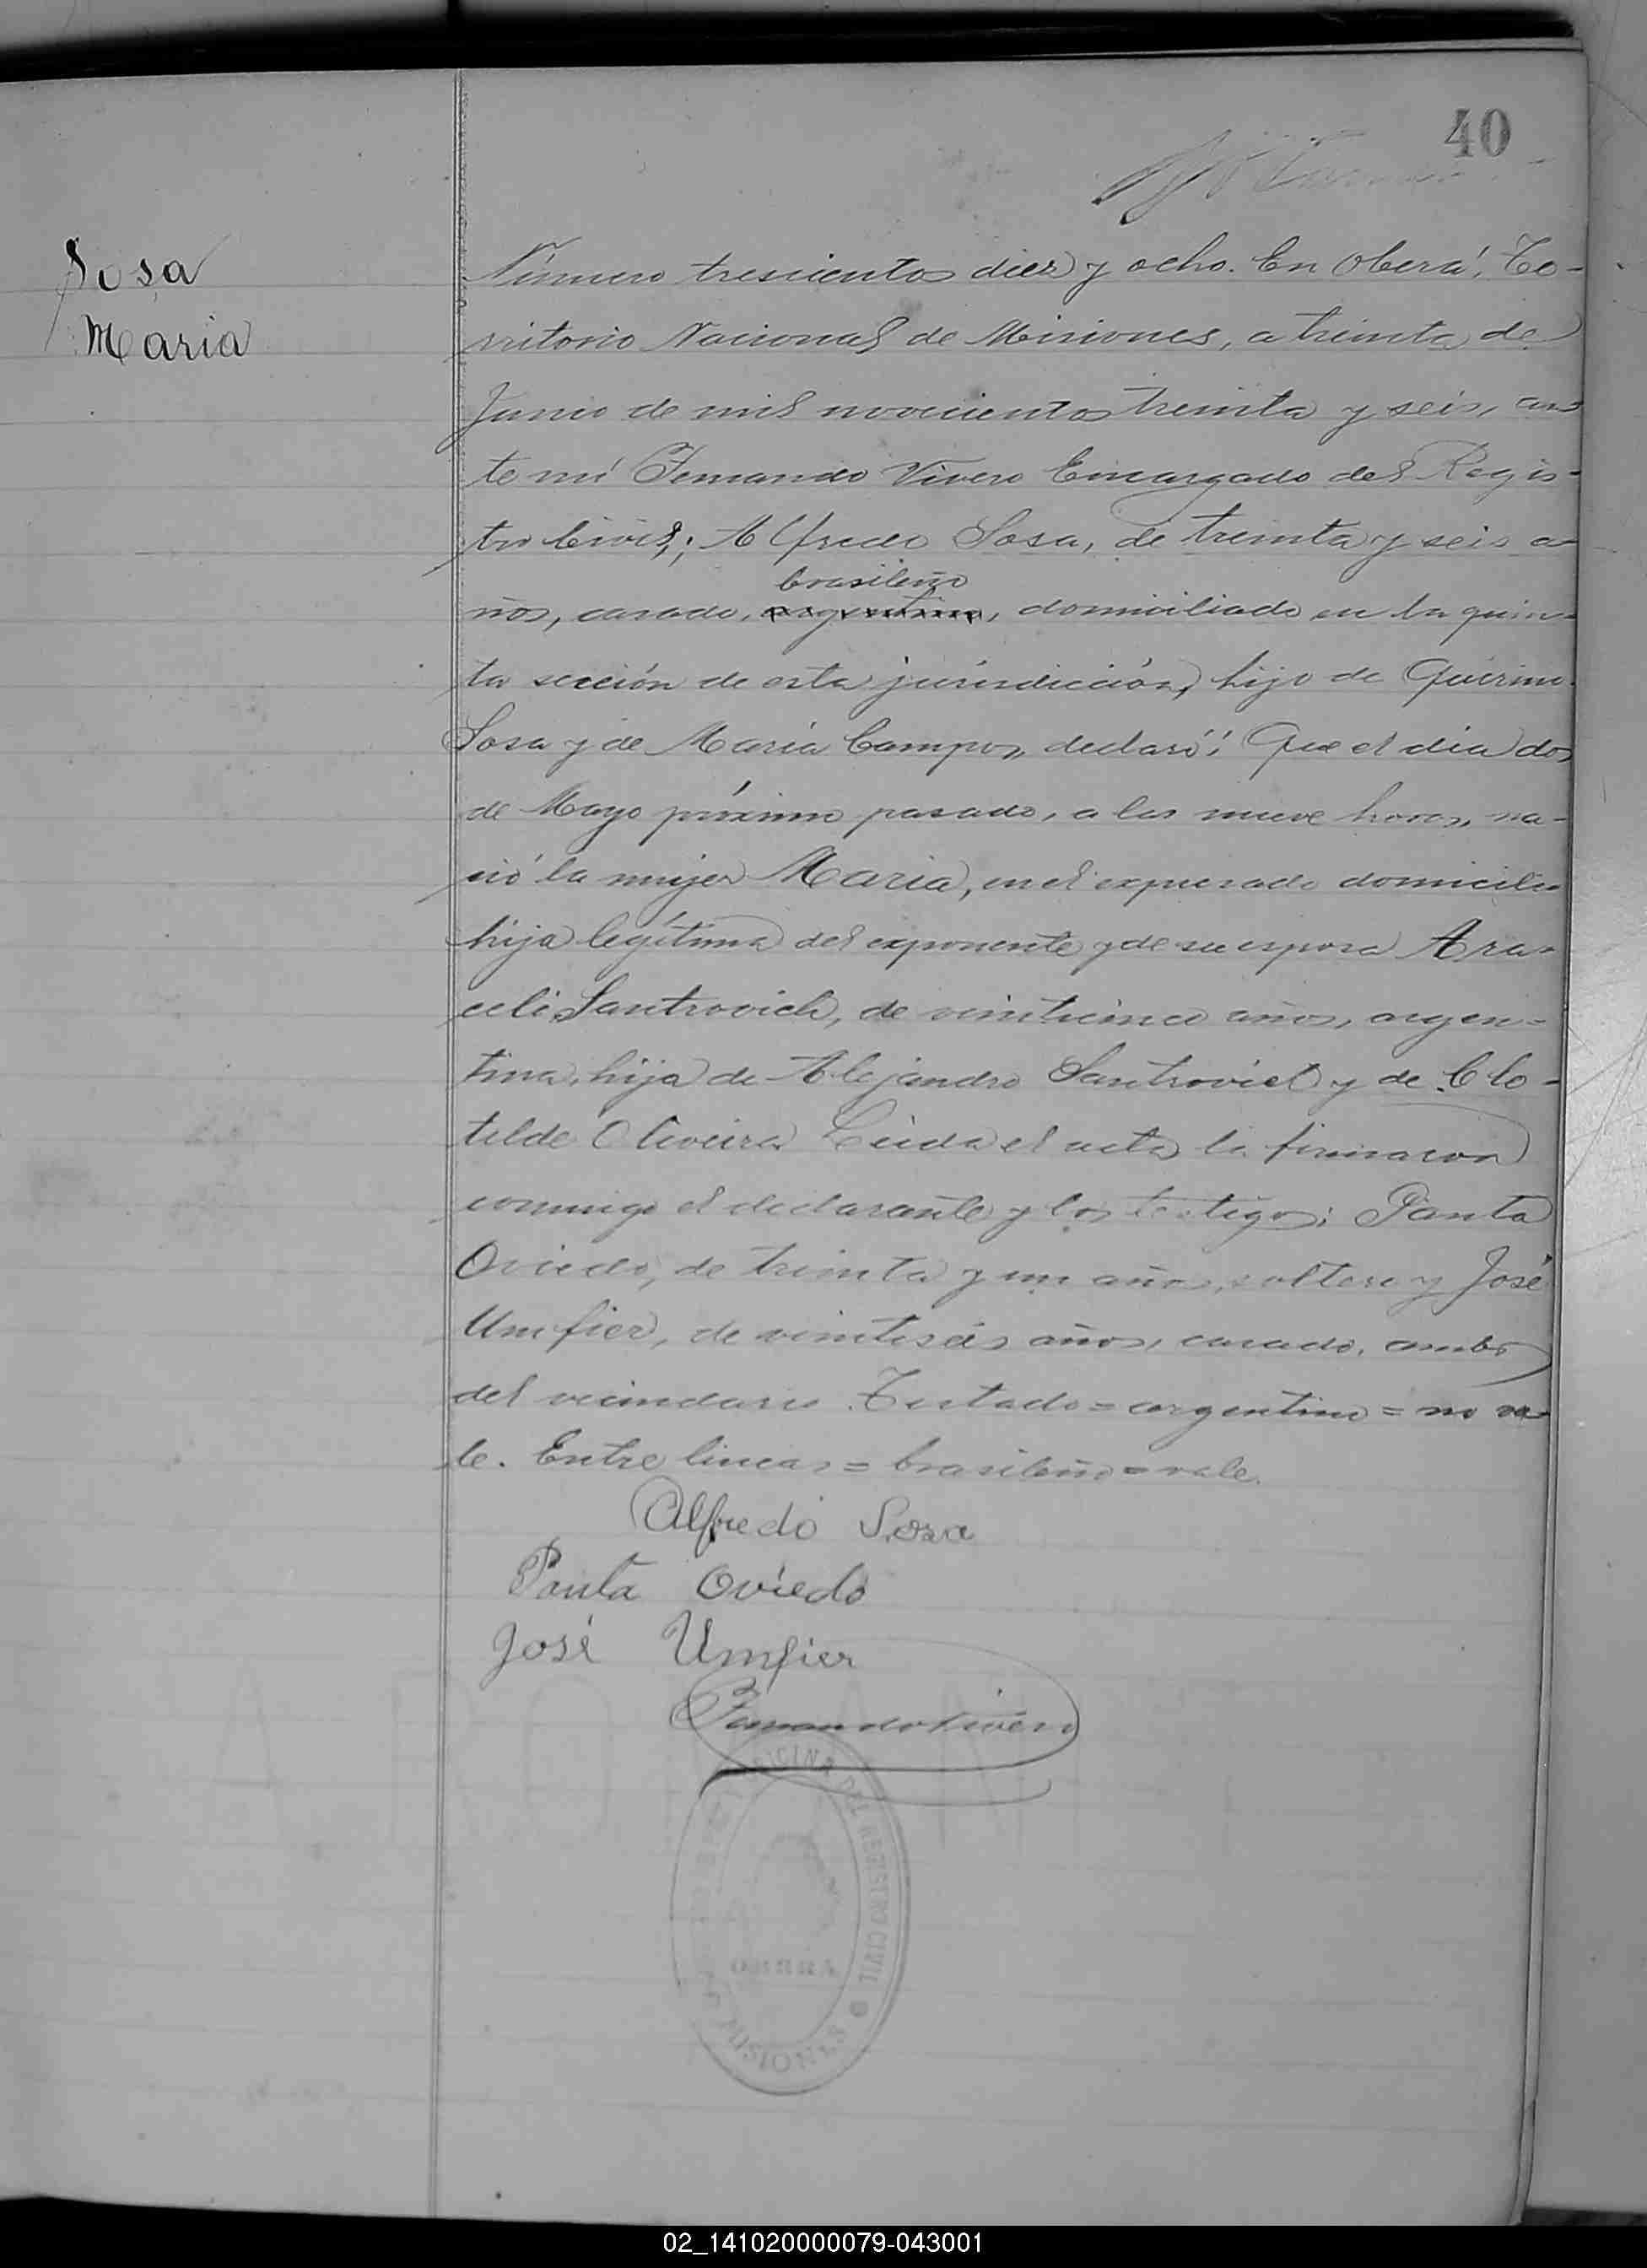 40
Sosa
Maria
Número trescientos diez y ocho. En Oberá, Te-
rritorio Nacional de Misiones, a treinta de
Junio de mil novecientos treinta y seis, an
te mí Fernando Vivero Encargado del Regis-
tro Civil,; Alfredo Sosa, de treinta y seis a-
brasileño
ños, casado, argentino, domiciliado en la quin-
ta sección de esta jurisdicción, hijo de Quirino
Sosa y de María Campos, declaró: Que el día dos
de Mayo próximo pasado, a las nueve horas, na-
ció la mujer Maria, en el expresado domicilio
hija legítima del exponente y de su esposa Ara-
celi Santrovich, de veinticinco años, argen-
tina, hija de Alejandro Santrovich y de Clo-
tilde Oliveira. Leida el acta la firmaron
conmigo el declarante y los testigos: Panta
Oviedo, de treinta y un años, soltero y José
Umfier, de veintiseis años, casado, ambos
del vecindario. Testado = argentino = no va-
le. Entre lineas = brasileño = vale.
Alfredo Sosa
Panta Oviedo
José Umfier
Fernando Vivero
OFICINA DEL REGISTRO CIVIL
OBERA
MISIONES
02_141020000079-043001